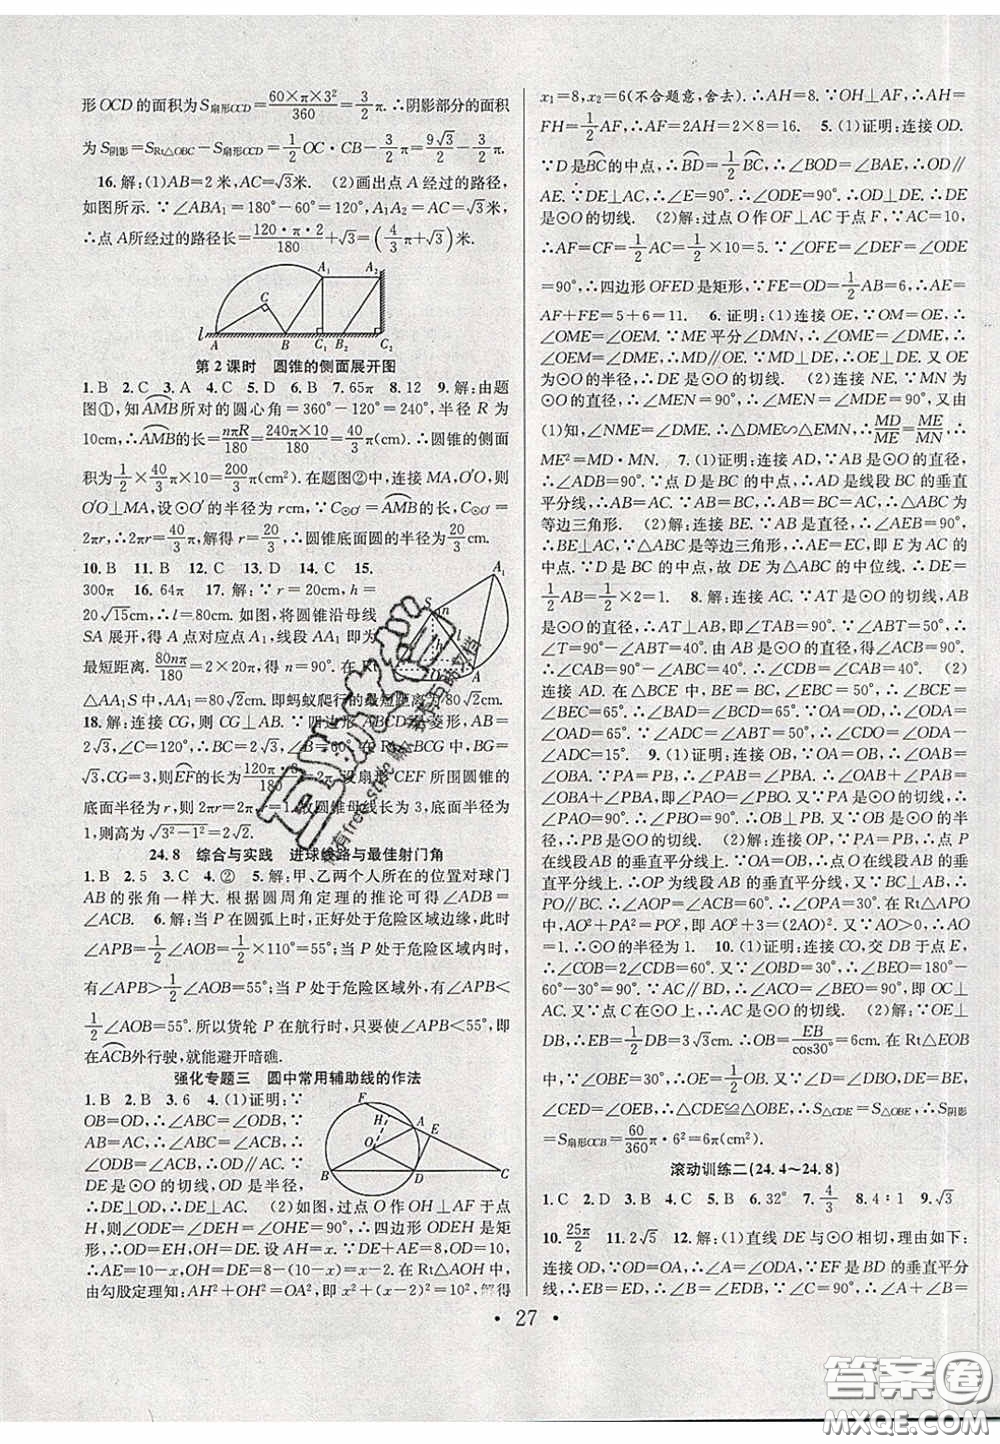 形OCD的面积为S扇形OCD=60×π×3²/360=3/2π.∴阴影部分的面积
为S阴影=S Rt△OBC-S扇形OCD=1/2OC·CB-3/2π=9√3/2-3/2π.
16.解:(1)AB=2米,AC=√3米. (2)画出点A经过的路径,
如图所示.∵∠ABA₁=180°-60°=120°,A₁A₂=AC=√3米,
∴点A所经过的路径长=120·π·2/180+√3=(4/3π+√3)米.
A₁ A₂ C l A B C₁ B₂ C₂
第2课时 圆锥的侧面展开图
1.B 2.C 3.A 4.C 5.D 6.B 7.65π 8.12 9.解:由题
图①,知AMB所对的圆心角=360°-120°=240°,半径R为
10cm,∴AMB的长=nπR/180=240π×10/180=40/3π(cm).∴圆锥的侧面
积为1/2×40/3π×10=200/3π(cm²).在题图②中,连接MA,O′O,则
O′O⊥MA,设⊙O′的半径为rcm,∵C⊙O′=AMB的长,C⊙O′=
2πr,∴2πr=40/3π,解得r=20/3.∴圆锥底面圆的半径为20/3cm.
10.B 11.B 12.C 13.D 14.C 15.
300π 16.64π 17.解:∵r=20cm,h=
20√15cm,∴l=80cm.如图,将圆锥沿母线
SA展开,得点A对应点A₁,线段AA₁即为
最短距离.80nπ/180=2×20π,得n=90°.在Rt
△AA₁S中,AA₁=80√2cm,即蚂蚁爬行的最短距离为80√2cm.
18.解:连接CG,则CG⊥AB.∵四边形ABCD为菱形,AB=
2√3,∠C=120°,∴∠B=60°.在Rt△BCG中,BG=
√3,CG=3=r,则EF的长为120π·3/180=2π.设扇形CEF所围圆锥的
底面半径为r,则2πr=2π,r=1.故圆锥母线长为3,底面半径为
1,则高为√3²-1²=2√2.
24.8 综合与实践 进球线路与最佳射门角
1.B 2.5 3.C 4.② 5.解:甲、乙两个人所在的位置对球门
AB的张角一样大.根据圆周角定理的推论可得∠ADB=
∠ACB. 6.解:当P在圆弧上时,正好处于危险区域边缘,此时
∠APB=1/2∠AOB=1/2×110°=55°;当P处于危险区域内时,
有∠APB>1/2∠AOB=55°;当P处于危险区域外时,有∠APB<
1/2∠AOB=55°.所以货轮P在航行时,只要使∠APB<55°,即
在ACB外行驶,就能避开暗礁.
强化专题三 圆中常用辅助线的作法
1.B 2.B 3.6 4.(1)证明:∵
OB=OD,∴∠ABC=∠ODB.∵
AB=AC,∴∠ABC=∠ACB.
∴∠ODB=∠ACB.∴OD∥AC.
∵DE是⊙O的切线,∴OD⊥DE.
∴DE⊥AC. (2)如图,过点O作OH⊥AF于点
H,则∠ODE=∠DEH=∠OHE=90°,∴四边形ODEH是矩
形,∴OD=EH,OH=DE.设AH=x.∵DE+AE=8,OD=10,
∴AE=10-x,OH=DE=8-(10-x)=x-2.在Rt△AOH中,
由勾股定理知:AH²+OH²=OA²,即x²+(x-2)²=10²,解得
x₁=8,x₂=6(不合题意,舍去).∴AH=8.∵OH⊥AF,∴AH=
FH=1/2AF,∴AF=2AH=2×8=16. 5.(1)证明:连接OD.
∵D是BC的中点,∴BD=1/2BC,∴∠BOD=∠BAE,∴OD∥
AE.∵DE⊥AC,∴∠E=90°,∴∠ODE=90°.∴OD⊥DE.∴DE
是⊙O的切线. (2)解:过点O作OF⊥AC于点F,∵AC=10,
∴AF=CF=1/2AC=1/2×10=5.∵∠OFE=∠DEF=∠ODE
=90°,∴四边形OFED是矩形,∵FE=OD=1/2AB=6,∴AE=
AF+FE=5+6=11. 6.证明:(1)连接OE,∵OM=OE,∴
∠OME=∠OEM.∵ME平分∠DMN,∴∠OME=∠DME,∴
∠OEM=∠DME,∵MD⊥DE,∴∠MDE=90°,∴OE⊥DE.∵OE
为⊙O的半径,∴DE是⊙O的切线. (2)连接NE.∵MN为
⊙O的直径,∴∠MEN=90°,∴∠MEN=∠MDE=90°.又由
(1)知,∠NME=∠DME.∴△DME∽△EMN,∴MD/ME=ME/MN,∴
ME²=MD·MN. 7.(1)证明:连接AD,∵AB是⊙O的直径,
∴∠ADB=90°.∵点D是BC的中点,∴AD是线段BC的垂直
平分线,∴AB=AC.∵AB=BC,∴AB=BC=AC,∴△ABC为
等边三角形. (2)解:连接BE.∵AB是直径,∴∠AEB=90°,
∴BE⊥AC.∵△ABC是等边三角形,∴AE=EC,即E为AC的
中点.∵D是BC的中点,故DE为△ABC的中位线.∴DE=
1/2AB=1/2×2=1. 8.解:连接AC.∵AT是⊙O的切线,AB是
⊙O的直径,∴AT⊥AB,即∠TAB=90°.∵∠ABT=50°,∴
∠T=90°-∠ABT=40°.由AB是⊙O的直径,得∠ACB=90°,
∴∠CAB=90°-∠ABC=40°,∴∠CDB=∠CAB=40°. (2)
连接AD.在△BCE中,BE=BC,∠EBC=50°,∴∠BCE=
∠BEC=65°,∴∠BAD=∠BCD=65°.∵OA=OD,∴∠ODA=
∠OAD=65°.∵∠ADC=∠ABC=50°,∴∠CDO=∠ODA-
∠ADC=15°. 9.(1)证明:连接OB,∵OA=OB,∴∠OAB=
∠OBA.∵PA=PB,∴∠PAB=∠PBA.∴∠OAB+∠PAB=
∠OBA+∠PBA,即∠PAO=∠PBO.又∵PA是⊙O的切线,
∴∠PAO=90°,∴∠PBO=90°,∴OB⊥PB.又∵OB是⊙O的
半径,∴PB是⊙O的切线. (2)连接OP,∵PA=PB,∴点P在
线段AB的垂直平分线上.∵OA=OB,∴点O在线段AB的垂
直平分线上,∴OP为线段AB的垂直平分线.又∵BC⊥AB,∴
PO∥BC,∴∠AOP=∠ACB=60°.∴∠OPA=30°.在Rt△APO
中,AO²+PA²=PO²,即AO²+3=(2AO)².又∵AO>0,∴AO=
1.∴⊙O的半径为1. 10.(1)证明:连接CO,交DB于点E,
∴∠O=2∠D=60°.又∵∠OBE=30°,∴∠BEO=180°-
60°-30°=90°.∵AC∥BD,∴∠ACO=∠BEO=90°,即OC⊥
AC.又∵点C在⊙O上,∴AC是⊙O的切线. (2)解:∵OE⊥
DB,∴EB=1/2DB=3√3cm.在Rt△EOB
中,∵∠OBE=30°,∴OB=EB/cos30°=6cm.∵∠CDB=∠DBO=30°,DE=BE,
∠CED=∠OEB,∴△CDE≌△OBE,∴S△CDE=S△OBE,∴S阴影
=S扇形OCB=60/360π·6²=6π(cm²).
滚动训练二(24.4~24.8)
1.C 2.D 3.C 4.B 5.B 6.32° 7.4/3 8.4∶1 9.√3
10.25π/2 11.2√5 12.解:(1)直线DE与⊙O相切,理由如下:
连接OD,∵OD=OA,∴∠A=∠ODA,∵EF是BD的垂直平分
线,∴EB=ED,∴∠B=∠EDB,∵∠C=90°,∴∠A+∠B=
• 27 •
答案圈
MXQE.COM